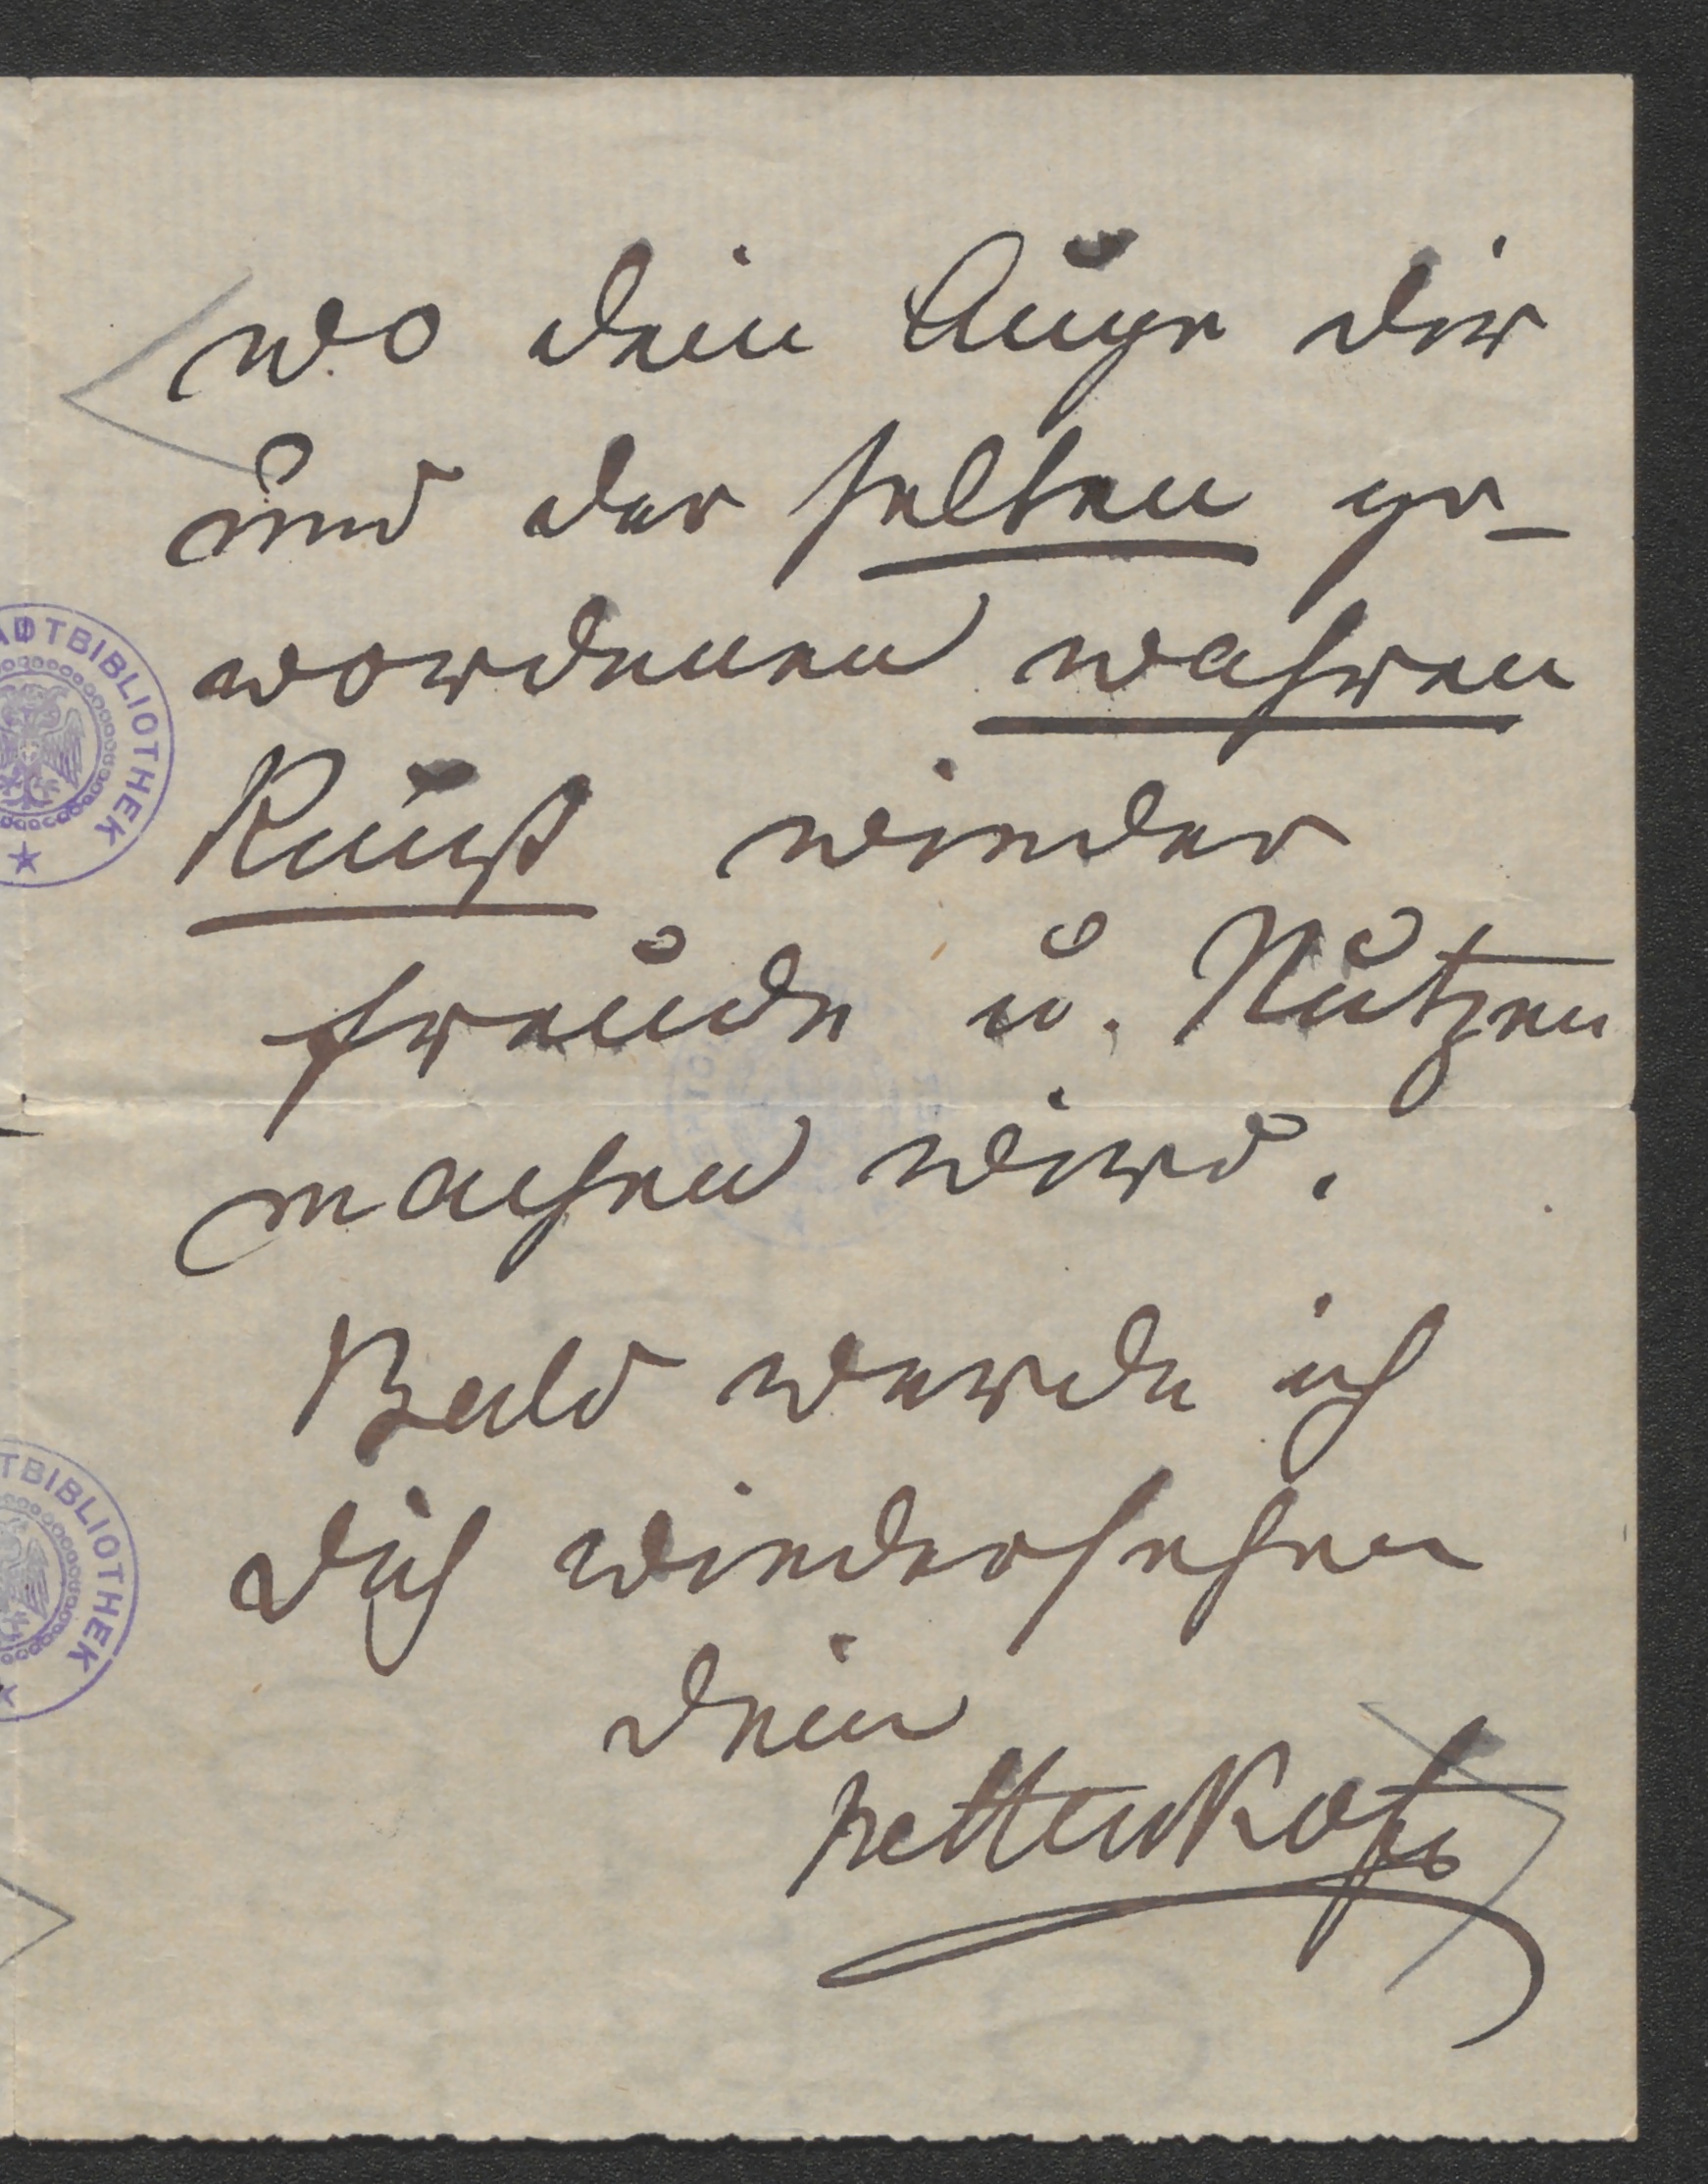 wo dein Auge dir
und der selten ge-
wordenen wahren
Kunst wieder
Freude u. Nutzen
machen wird.
Bald werde ich
dich wiedersehen
dein
Pettenkofer
STADTBIBLIOTHEK
TBIBLIOTHEK